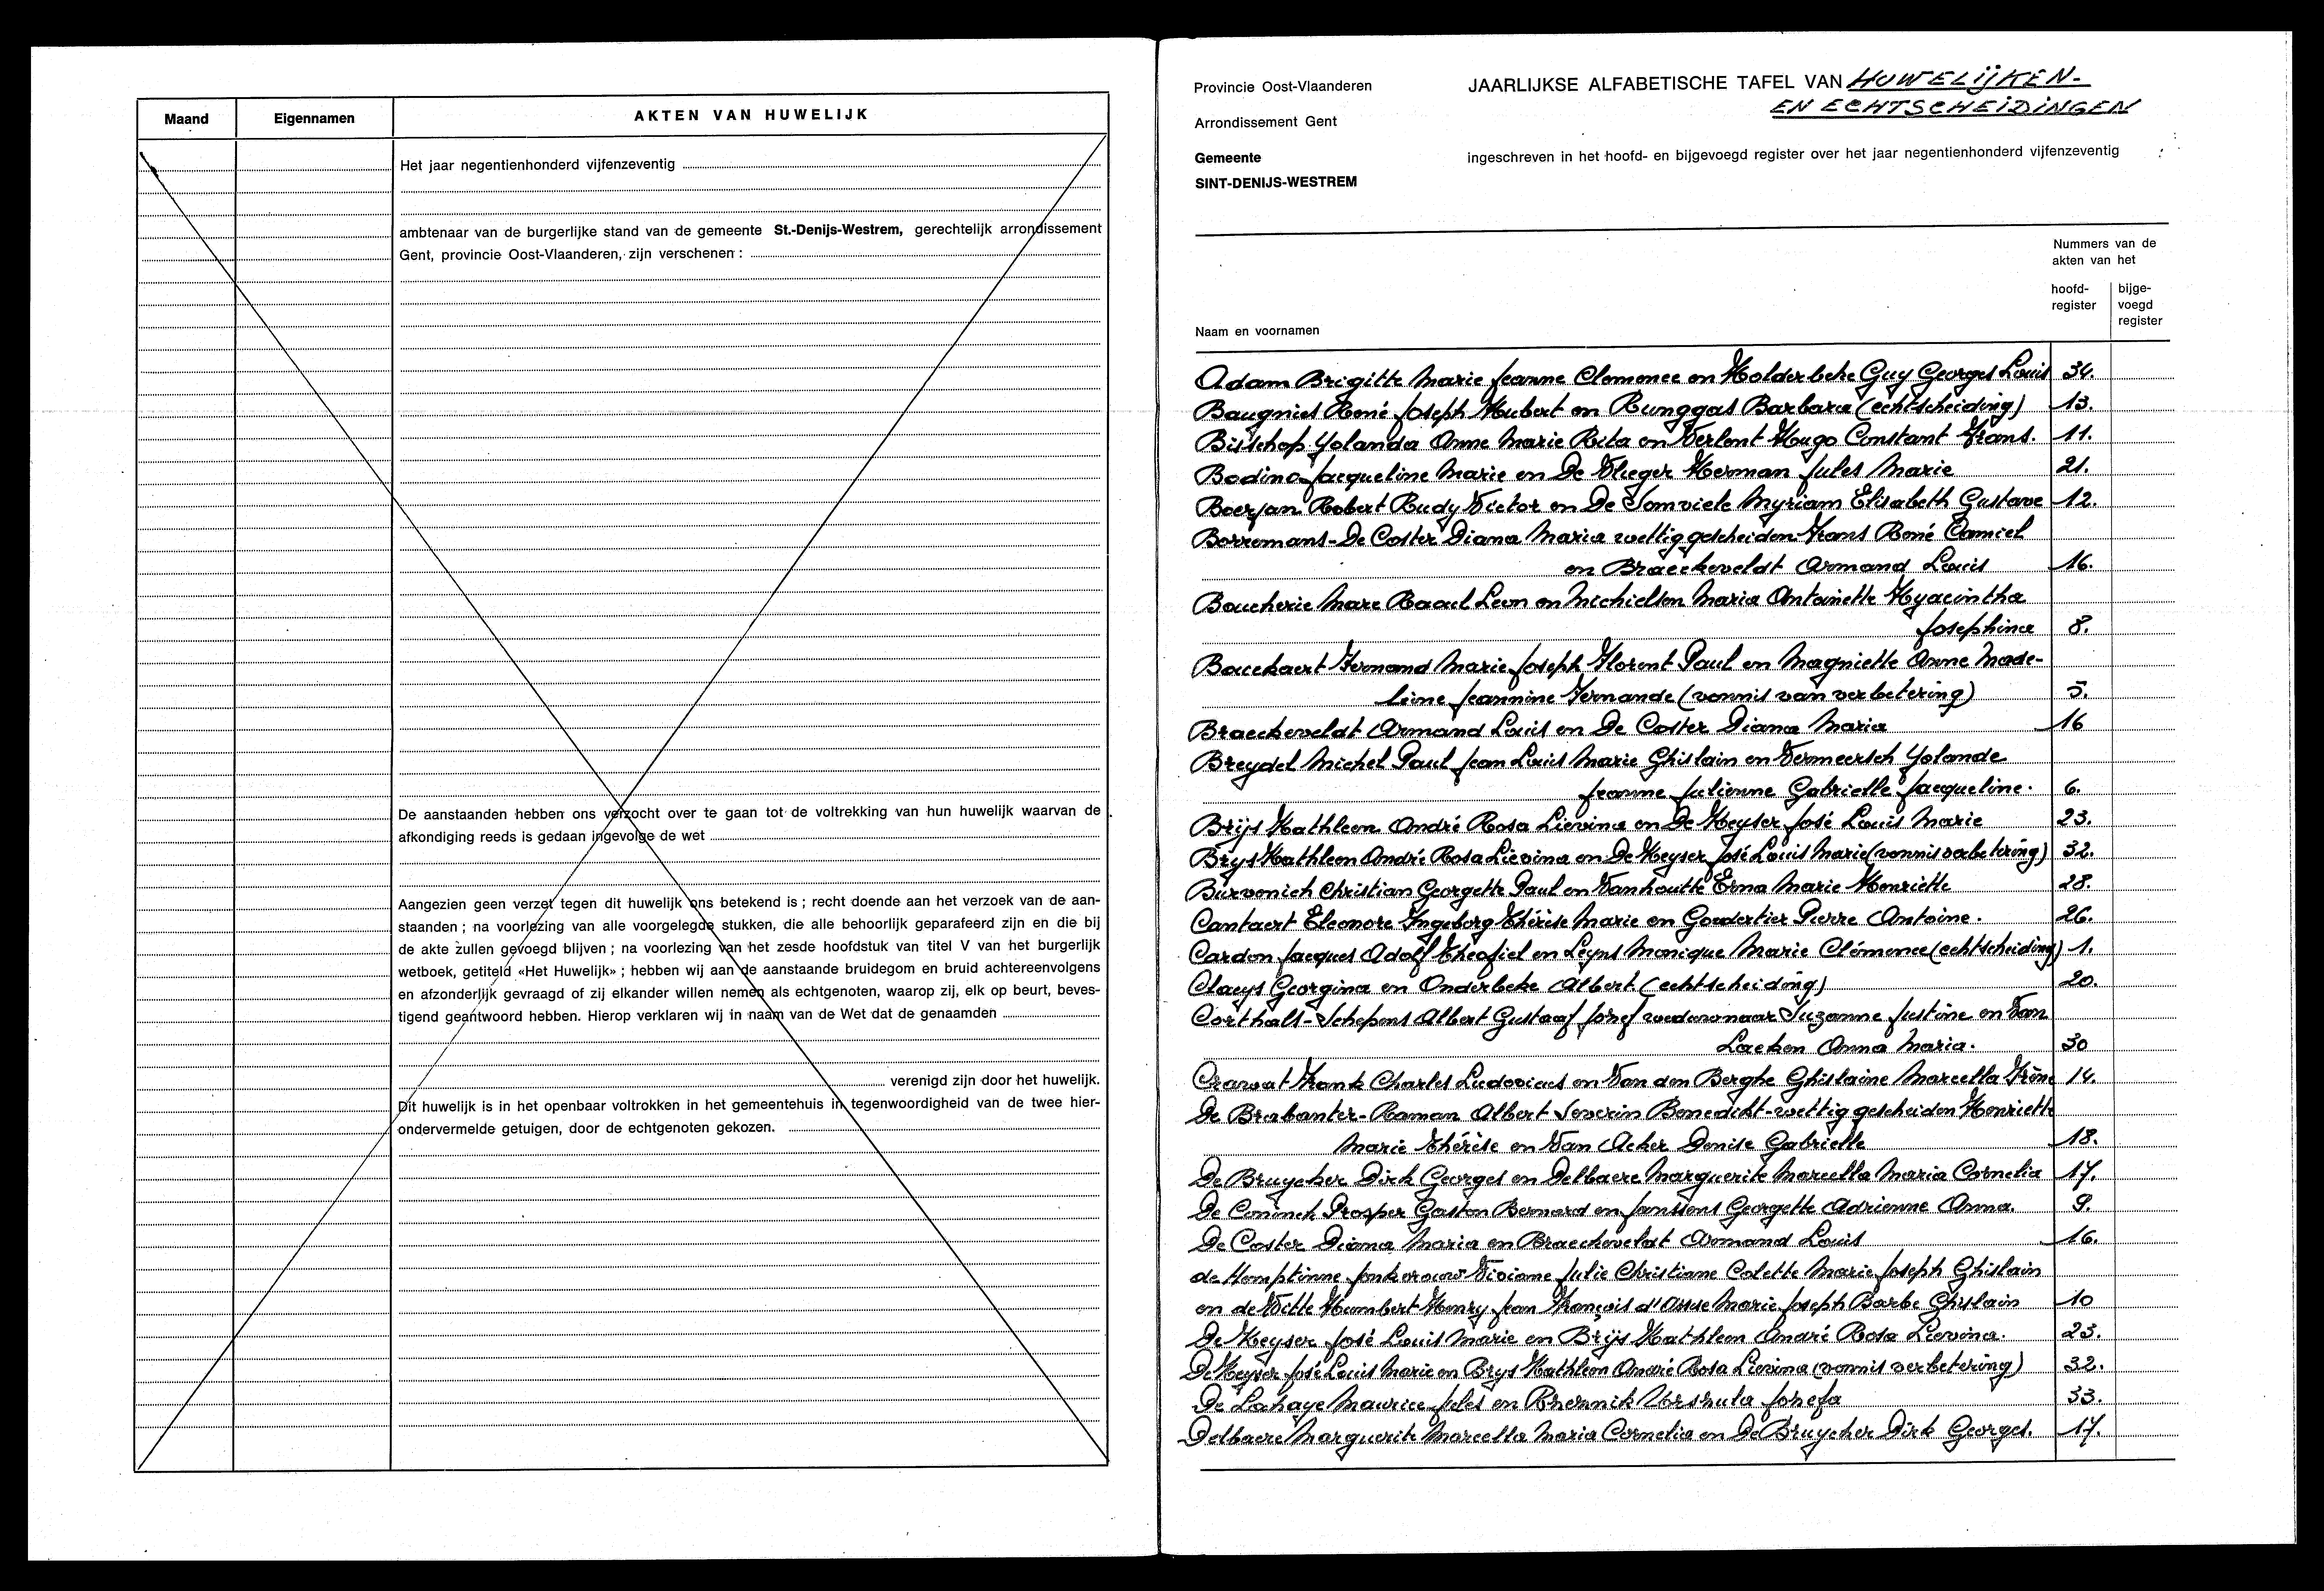 Maand
Eigennamen
AKTEN VAN HUWELIJK
Het jaar negentienhonderd vijfenzeventig
ambtenaar van de burgerlijke stand van de gemeente St.-Denijs-Westrem, gerechtelijk arrondissement
Gent, provincie Oost-Vlaanderen, zijn verschenen :
De aanstaanden hebben ons verzocht over te gaan tot de voltrekking van hun huwelijk waarvan de
afkondiging reeds is gedaan ingevolge de wet
Aangezien geen verzet tegen dit huwelijk ons betekend is ; recht doende aan het verzoek van de aan-
staanden ; na voorlezing van alle voorgelegde stukken, die alle behoorlijk geparafeerd zijn en die bij
de akte zullen gevoegd blijven ; na voorlezing van het zesde hoofdstuk van titel V van het burgerlijk
wetboek, getiteld «Het Huwelijk» ; hebben wij aan de aanstaande bruidegom en bruid achtereenvolgens
en afzonderlijk gevraagd of zij elkander willen nemen als echtgenoten, waarop zij, elk op beurt, beves-
tigend geantwoord hebben. Hierop verklaren wij in naam van de Wet dat de genaamden
verenigd zijn door het huwelijk.
Dit huwelijk is in het openbaar voltrokken in het gemeentehuis in tegenwoordigheid van de twee hier-
ondervermelde getuigen, door de echtgenoten gekozen.
Provincie Oost-Vlaanderen
JAARLIJKSE ALFABETISCHE TAFEL VAN HUWELIJKEN-
EN ECHTSCHEIDINGEN
Arrondissement Gent
Gemeente
SINT-DENIJS-WESTREM
ingeschreven in het hoofd- en bijgevoegd register over het jaar negentienhonderd vijfenzeventig :
Nummers van de
akten van het
hoofd-
register
bijge-
voegd
register
Naam en voornamen
Adam Brigitte Marie Jeanne Clemence en Holderbeke Guy Georges Louis 34.
Baugnies René Joseph Hubert en Runggas Barbara (echtscheiding) 13.
Bisschop Yolanda Anne Marie Rita en Verlent Hugo Constant Frans. 11.
Bodin Jacqueline Marie en De Vlieger Herman Jules Marie 21.
Boerjan Robert Rudy Victor en De Somviele Myriam Elisabeth Gustave 12.
Borremans-De Coster Diana Maria wettig gescheiden Frans René Camiel
en Braeckeveldt Armand Louis 16.
Boucherie Marc Raoul Leon en Michielsen Maria Antoinette Hyacintha
Josephina 8.
Bouckaert Fernand Marie Joseph Florent Paul en Magniette Anne Made-
leine Jeannine Fernande (vonnis van verbetering) 5.
Braeckeveldt Armand Louis en De Coster Diana Maria 16
Breydel Michel Paul Jean Louis Marie Ghislain en Vermeersch Yolande
Jeanne Julienne Gabrielle Jacqueline. 6.
Brijs Kathleen André Rosa Lievina en De Keyser José Louis Marie 23.
Brys Kathleen André Rosa Lievina en De Keyser José Louis Marie (vonnis verbetering) 32.
Burvenich Christian Georgette Paul en Vanhoutte Erna Marie Henriette 28.
Cantaert Eleonore Ingeborg Thérèse Marie en Goudertier Pierre Antoine. 26.
Cardon Jacques Adolf Theofiel en Leyns Monique Marie Clémence (echtscheiding) 1.
Claeys Georgina en Onderbeke Albert (echtscheiding) 20.
Corthals-Schepens Albert Gustaaf Jozef weduwnaar Suzanne Justine en Van
Laeken Anna Maria. 30
Crawat Frank Charles Ludovicus en Van den Berghe Ghislaine Marcella Irène 14.
De Brabanter-Raman Albert Severin Benedikt-wettig gescheiden Henriette
Marie Thérèse en Van Acker Denise Gabrielle 18.
De Bruycker Dirk Georges en Delbaere Marguerite Marcella Maria Cornelia 17.
De Coninck Prosper Gaston Bernard en Janssens Georgette Adrienne Anna. 9.
De Coster Diana Maria en Braeckeveldt Armand Louis 16.
de Hemptinne Jonkvrouw Viviane Julie Christiane Colette Marie Joseph Ghislain
en de Witte Humbert Henry Jean François d'Assise Marie Joseph Barbe Ghislain 10
De Keyser José Louis Marie en Brijs Kathleen André Rosa Lievina. 23.
De Keyser José Louis Marie en Brys Kathleen André Rosa Lievina (vonnis verbetering) 32.
De Lahaye Maurice Jules en Urszula Jozefa 33.
Delbaere Marguerite Marcella Maria Cornelia en De Bruycker Dirk Georges. 17.